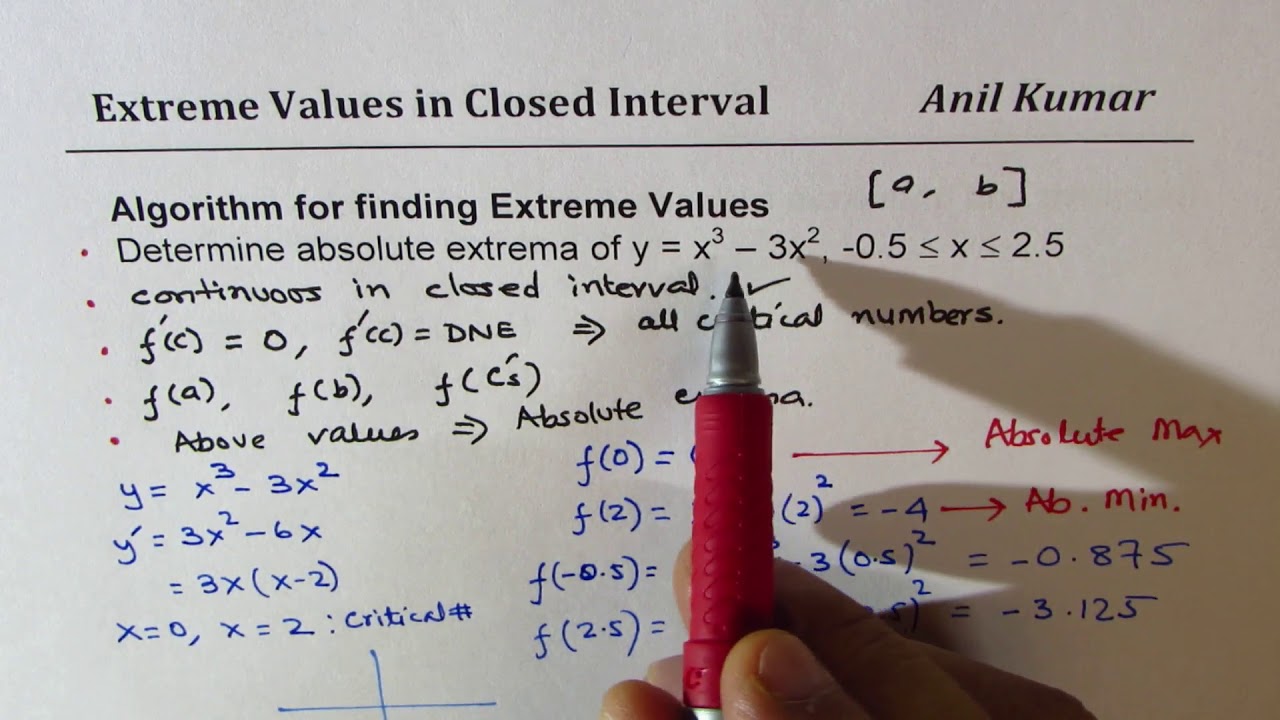 Extreme Values in Closed Interval Anil Kumar
Algorithm for finding Extreme Values [a, b]
• Determine absolute extrema of y = x³ – 3x², -0.5 ≤ x ≤ 2.5
• continuous in closed interval. ✓
• f'(c) = 0, f'(c) = DNE ⇒ all numbers.
• f(a), f(b), f(c's)
• Above values ⇒ Absolute
y = x³ - 3x²
y' = 3x² - 6x
= 3x(x-2)
x=0, x=2 : Critical #
f(0) = → Absolute Max
f(2) = (2)² = -4 → Ab. Min.
f(-0.5) = - 3(0.5)² = -0.875
f(2.5) = 5)² = -3.125